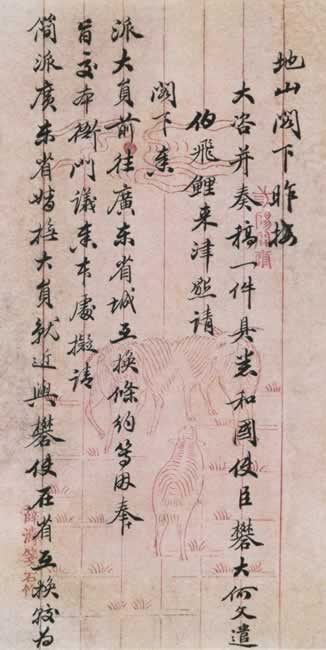 地山閣下昨接
大咨并奏稿一件具悉和國使臣礬大何文遣
伯飛鯉来津照請
閣下奏
派大員前往廣东省城互換條約等因奉
旨交本衙門議奏本處擬請
簡派廣东省督撫大員就近與礬使在省互換較为